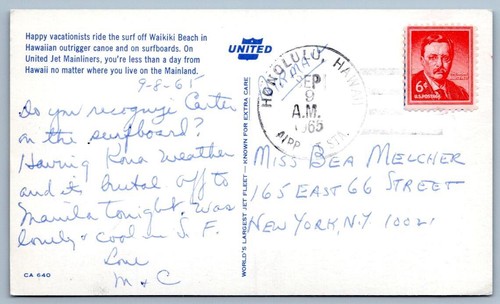 Happy vacationists ride the surf off Waikiki Beach in
Hawaiian outrigger canoe and on surfboards. On
United Jet Mainliners, you're less than a day from
Hawaii no matter where you live on the Mainland.
9-8-65
Do you recognize Carter
on the surfboard?
Having Kona weather
and it's brutal off to
Manila tonight. Was
lovely & cool in S.F.
Love
M & C
CA 640
UNITED
WORLD'S LARGEST JET FLEET — KNOWN FOR EXTRA CARE
HONOLULU, HAWAII
SEP
9
A.M.
1965
6¢
Miss Bea Melcher
165 East 66 Street
New York, N.Y. 10021